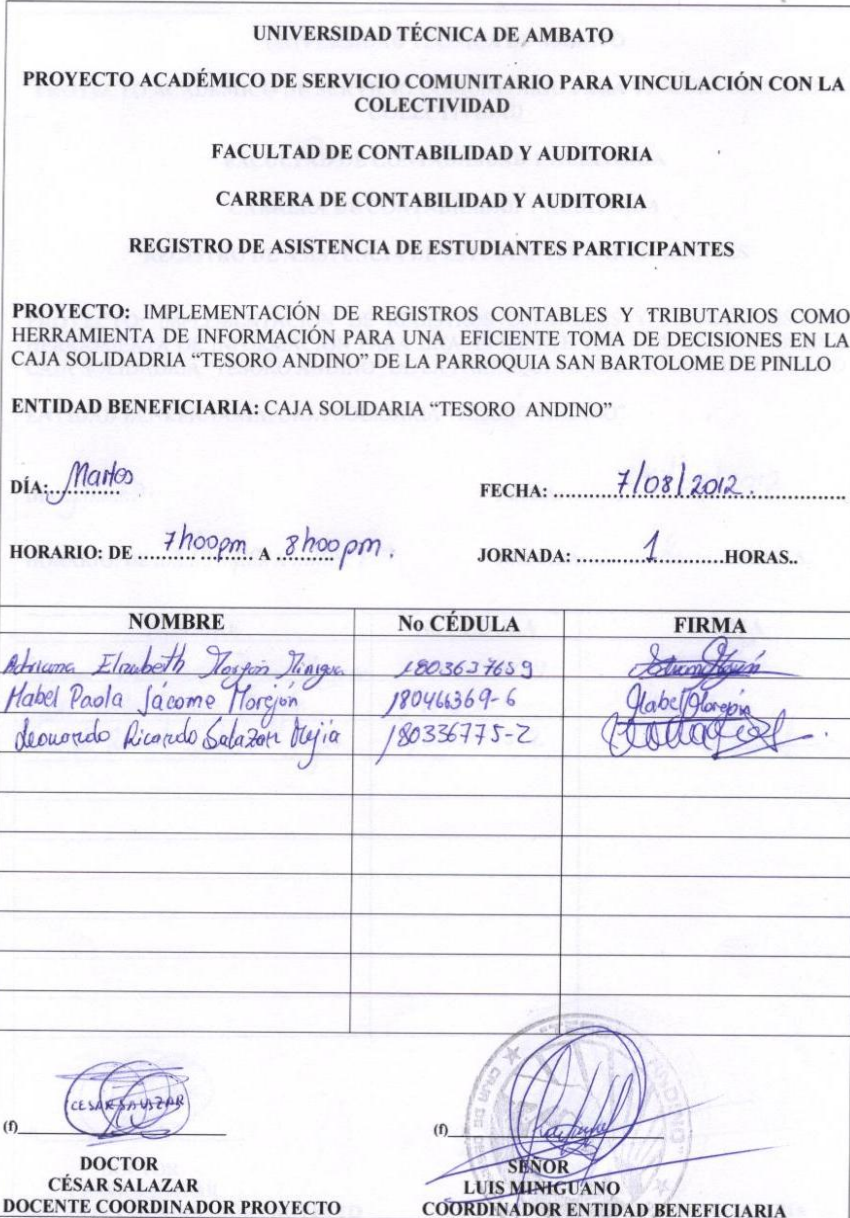 UNIVERSIDAD TÉCNICA DE AMBATO
PROYECTO ACADÉMICO DE SERVICIO COMUNITARIO PARA VINCULACIÓN CON LA
COLECTIVIDAD
FACULTAD DE CONTABILIDAD Y AUDITORIA
CARRERA DE CONTABILIDAD Y AUDITORIA
REGISTRO DE ASISTENCIA DE ESTUDIANTES PARTICIPANTES
PROYECTO: IMPLEMENTACIÓN DE REGISTROS CONTABLES Y TRIBUTARIOS COMO
HERRAMIENTA DE INFORMACIÓN PARA UNA EFICIENTE TOMA DE DECISIONES EN LA
CAJA SOLIDADRIA “TESORO ANDINO” DE LA PARROQUIA SAN BARTOLOME DE PINLLO
ENTIDAD BENEFICIARIA: CAJA SOLIDARIA “TESORO ANDINO”
DÍA: Martes FECHA: 7/08/2012
HORARIO: DE 7h00pm A 8h00pm. JORNADA: 1 HORAS..
NOMBRE No CÉDULA FIRMA
Adriana Elizabeth 1803637659
Mabel Paola Jácome Morejón 180466369-6 Mabel Morejón
Leonardo Ricardo Salazar Mejía 180336775-2
CESAR SALAZAR
(f) (f)
DOCTOR SEÑOR
CÉSAR SALAZAR LUIS MINIGUANO
DOCENTE COORDINADOR PROYECTO COORDINADOR ENTIDAD BENEFICIARIA